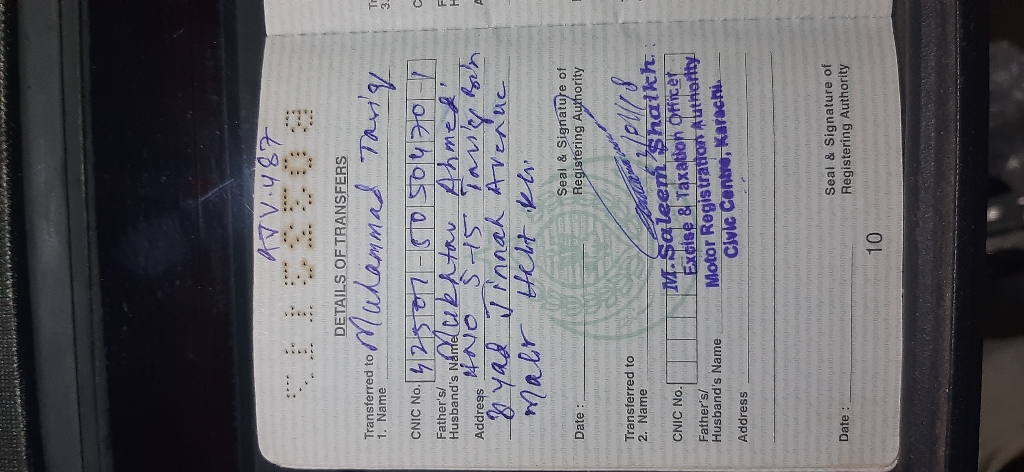 KTV-487
DETAILS OF TRANSFERS
Transferred to
1. Name Muhammad Tariq
CNIC No. 42501-5050470-1
Father's/
Husband's Name Mukhtar Ahmed
Address HNO S-15 Tariq Bin
Zyad Jinnah Avenue
Malir Halt Khi.
Date :
Seal & Signature of
Registering Authority
Transferred to
2. Name
CNIC No.
M. Saleem Shaikh
Father's/
Husband's Name
Excise & Taxation Officer
Motor Registration Authority
Address
Civic Centre, Karachi.
Date :
Seal & Signature of
Registering Authority
10